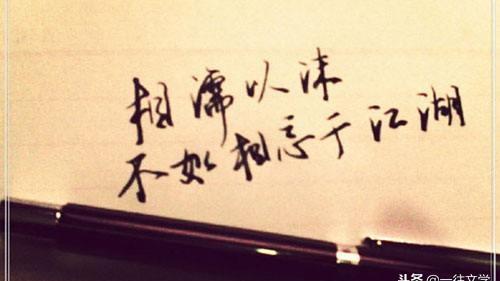 相濡以沫
不如相忘于江湖
头条 @一往文学